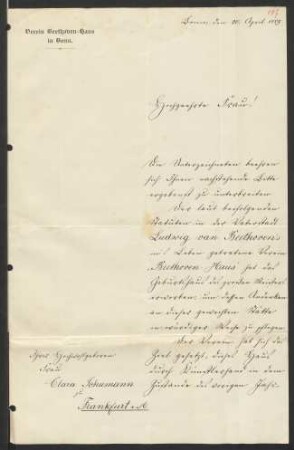 Verein Beethoven-Haus
in Bonn.
Bonn, den 10. April 1889
Hochgeehrte Frau!
Die Unterzeichneten beehren
sich Ihnen nachstehende Bitte
ergebenst zu unterbreiten
Der laut beifolgenden
Statuten in der Vaterstadt
Ludwig van Beethoven's
in's Leben getretene Verein
Beethoven Haus hat das
Geburtshaus des großen Meisters
erworben, um dessen Andenken
an dieser geweihten Stätte
in würdiger Weise zu pflegen.
Der Verein hat sich das
Ziel gesetzt, dieses Haus
durch Künstlerhand in dem
Zustande des vorigen Jahr-
Ihrer Hochwohlgeboren
Frau
Clara Schumann
Frankfurt a/M